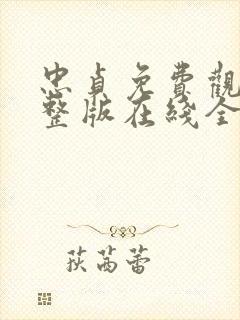 忠貞免費觀
整版在綫全
荻芮蕾